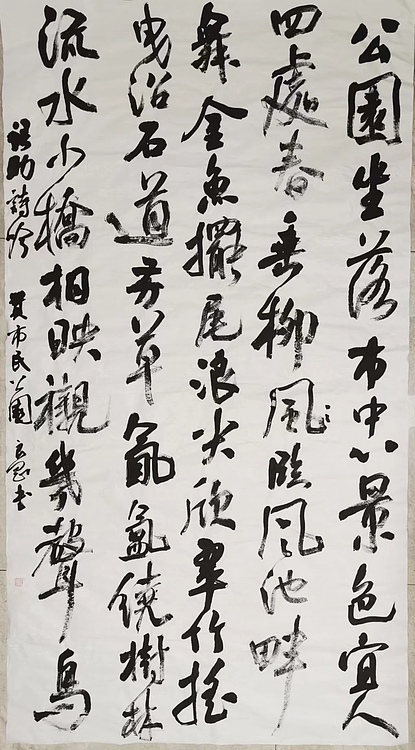 公園坐落市中心景色宜人
四處春垂柳風臨風池畔
舞金魚擺尾浪尖欣翠竹搖
曳沿石道芳草氤氳繞樹林
流水小橋相映襯幾聲鳥
語助詩吟 賀市民公園 书